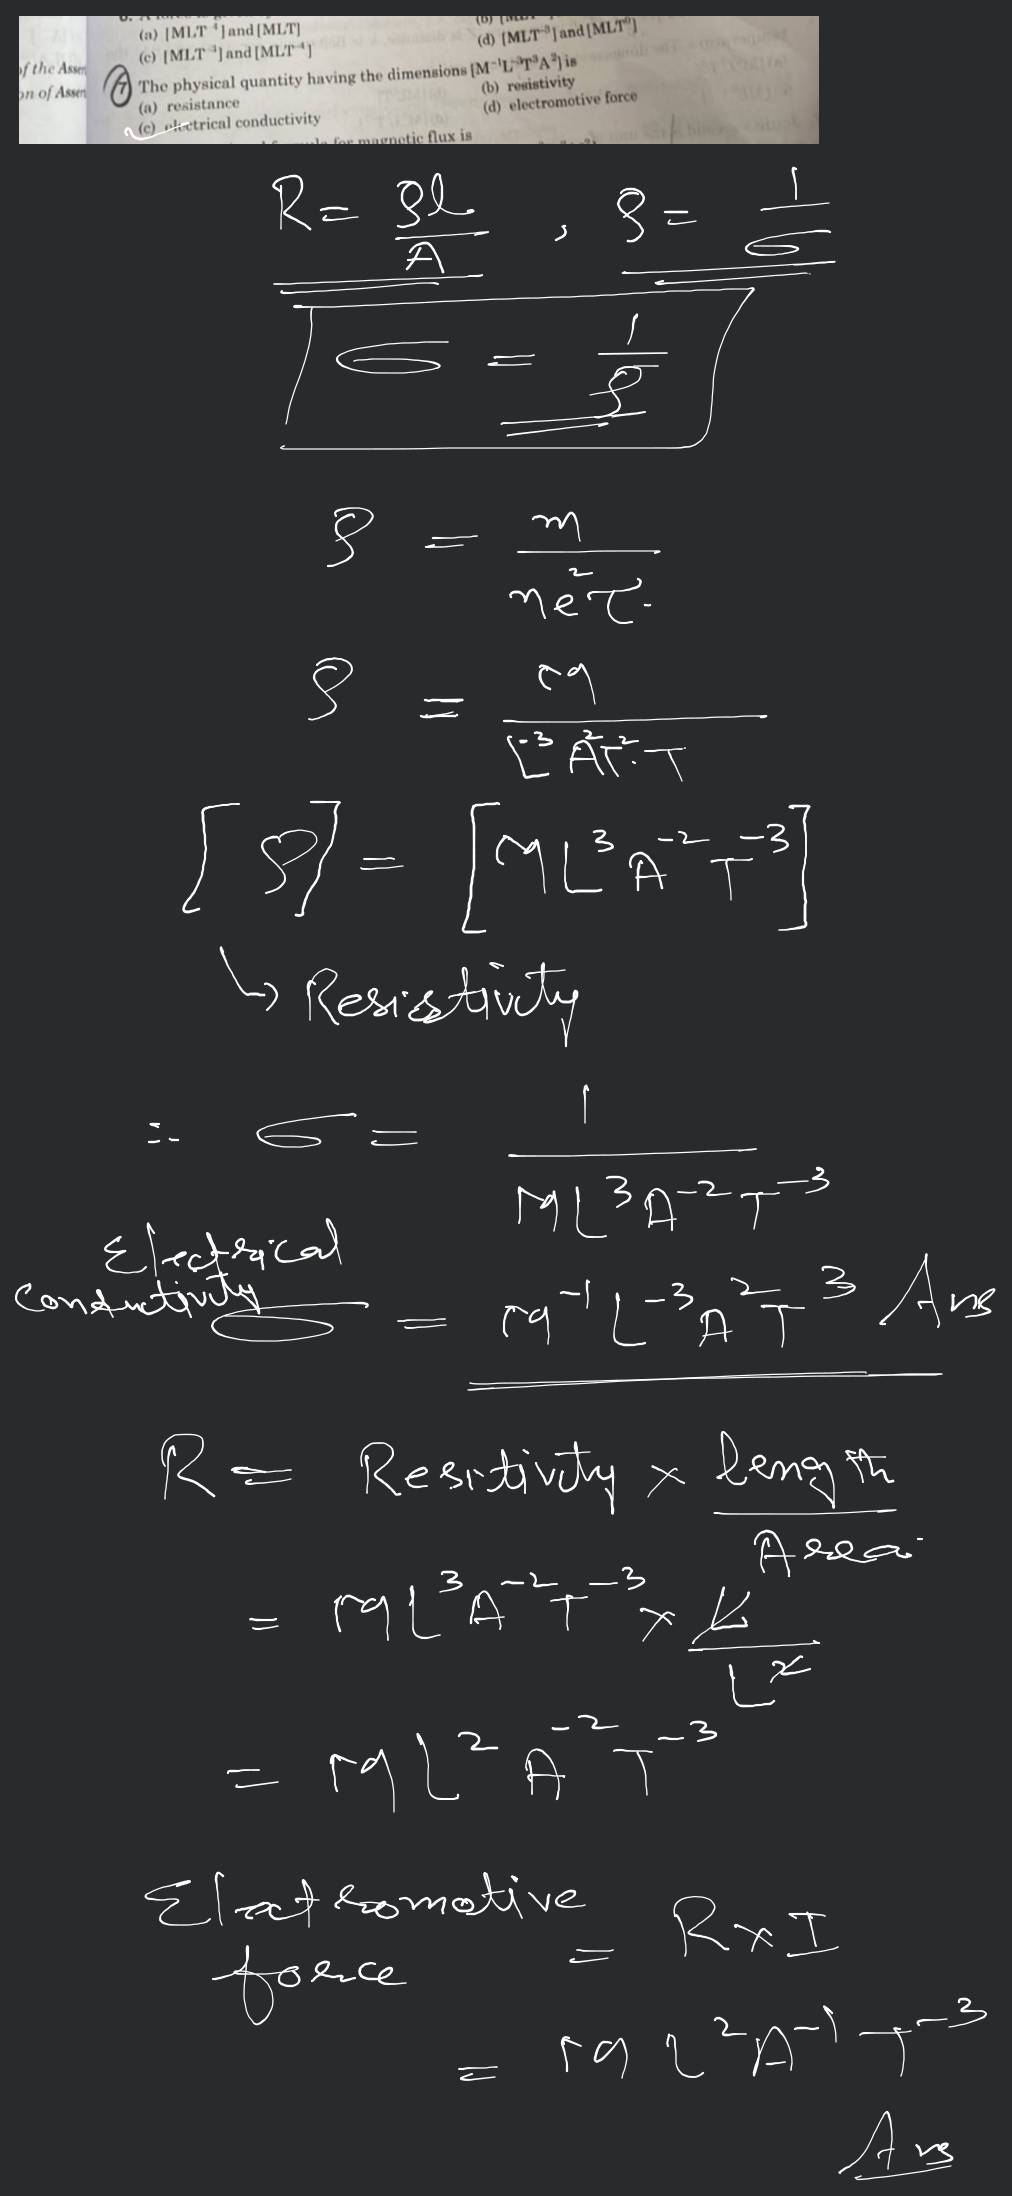 (a) [MLT⁻⁴] and [MLT]
(c) [MLT⁻³] and [MLT⁻⁴]
(d) [MLT⁻³] and [MLT⁰]
of the Asser
on of Asser
7 The physical quantity having the dimensions [M⁻¹L⁻³T³A²] is
(a) resistance
(b) resistivity
(c) electrical conductivity
(d) electromotive force
for magnetic flux is
R = ρl/A , ρ = 1/σ
σ = 1/ρ
ρ = m/ne²τ
ρ = M/L⁻³A²T².T
[ρ] = [ML³A⁻²T⁻³]
↳ Resistivity
∴ σ = 1/ML³A⁻²T⁻³
Electrical
conductivity σ = M⁻¹L⁻³A²T³ Ans
R = Resitivity × length/Area
= ML³A⁻²T⁻³ × L/L²
= ML²A⁻²T⁻³
Electromotive
force = R×I
= ML²A⁻¹T⁻³
Ans